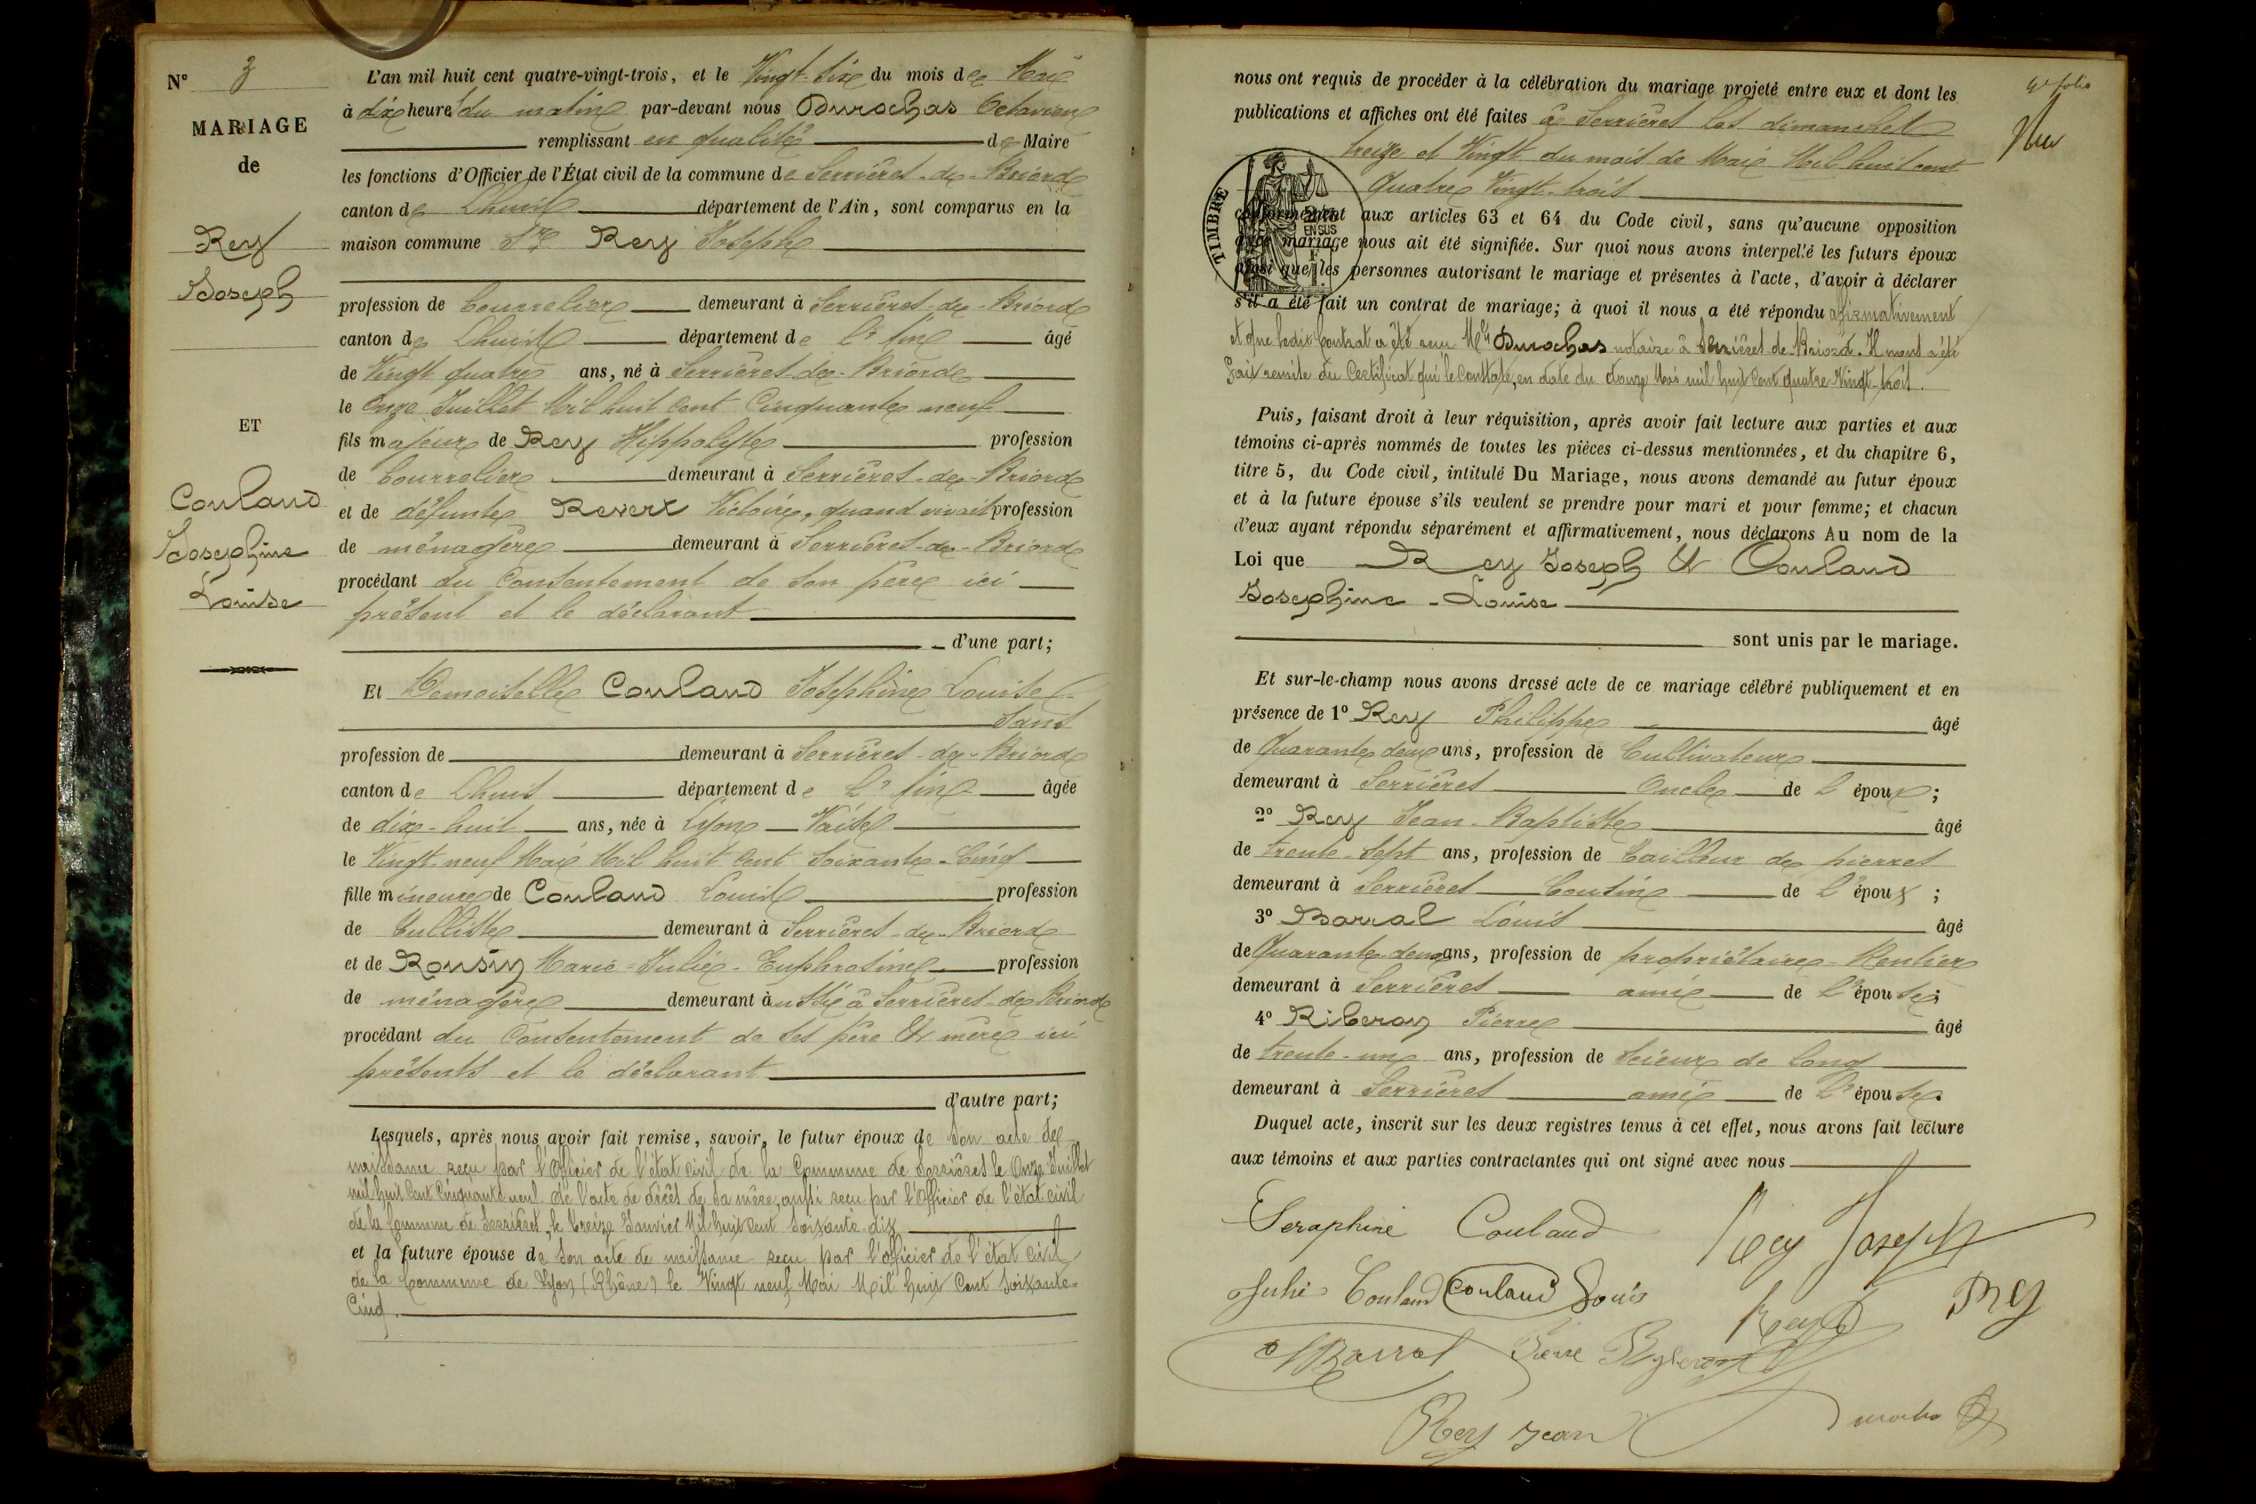 N° 3
MARIAGE
de
Rey
Joseph
ET
Couland
Josephine
Louise
L'an mil huit cent quatre-vingt-trois, et le Vingt-six du mois de Mai
à dix heures du matin par-devant nous Durochas Octavien
remplissant en qualité de Maire
les fonctions d'Officier de l'État civil de la commune de Serrières-de-Briord
canton de Lhuis département de l'Ain, sont comparus en la
maison commune Sr Rey Joseph
profession de bourrelier demeurant à Serrières-de-Briord
canton de Lhuis département de l'Ain âgé
de Vingt quatre ans, né à Serrières-de-Briord
le Onze Juillet Mil huit cent Cinquante neuf
fils majeur de Rey Hippolyte profession
de bourrelier demeurant à Serrières-de-Briord
et de défunte Revert Victoire, quand vivait profession
de ménagère demeurant à Serrières-de-Briord
procédant du Consentement de son père ici
présent et le déclarant
d'une part;
Et Demoiselle Couland Joséphine Louise
Sans
profession de demeurant à Serrières-de-Briord
canton de Lhuis département de l'Ain âgée
de dix-huit ans, née à Lyon Vaise
le Vingt-neuf Mai Mil huit cent soixante-Cinq
fille mineure de Couland Louis profession
de Tulliste demeurant à Serrières-de-Briord
et de Rousin Marie-Julie-Euphrosine profession
de ménagère demeurant à Serrières-de-Briord
procédant du Consentement de ses père et mère ici
présents et le déclarant
d'autre part;
Lesquels, après nous avoir fait remise, savoir, le futur époux de son acte de
naissance reçu par l'Officier de l'état civil de la Commune de Serrières le Onze Juillet
mil huit Cent Cinquante neuf de l'acte de décès de sa mère, aussi reçu par l'Officier de l'état civil
de la Commune de Serrières, le treize Janvier Mil huit cent soixante dix
et la future épouse de son acte de naissance reçu par l'officier de l'état civil
de la Commune de Lyon (Rhône) le Vingt neuf Mai Mil huit Cent soixante-
Cinq.
4e folio
nous ont requis de procéder à la célébration du mariage projeté entre eux et dont les
publications et affiches ont été faites à Serrières les dimanches
treize et Vingt du mois de Mai Mil huit cent
Quatre Vingt-trois
TIMBRE
EN SUS
conformément aux articles 63 et 64 du Code civil, sans qu'aucune opposition
à ce mariage nous ait été signifiée. Sur quoi nous avons interpellé les futurs époux
ainsi que les personnes autorisant le mariage et présentes à l'acte, d'avoir à déclarer
s'il a été fait un contrat de mariage; à quoi il nous a été répondu afirmativement
et que ledit Contrat a été reçu Me Durochas notaire à Serrières de Briord. Il nous a été
Fait remise du Certificat qui le constate, en date du douze Mai mil huit Cent quatre Vingt-trois.
Puis, faisant droit à leur réquisition, après avoir fait lecture aux parties et aux
témoins ci-après nommés de toutes les pièces ci-dessus mentionnées, et du chapitre 6,
titre 5, du Code civil, intitulé Du Mariage, nous avons demandé au futur époux
et à la future épouse s'ils veulent se prendre pour mari et pour femme; et chacun
d'eux ayant répondu séparément et affirmativement, nous déclarons Au nom de la
Loi que Rey Joseph et Couland
Josephine-Louise
sont unis par le mariage.
Et sur-le-champ nous avons dressé acte de ce mariage célébré publiquement et en
présence de 1° Rey Philippe âgé
de Quarante deux ans, profession de Cultivateur
demeurant à Serrières Oncle de l'époux;
2° Rey Jean-Baptiste âgé
de trente-sept ans, profession de tailleur de pierres
demeurant à Serrières Cousin de l'époux;
3° Barral Louis âgé
de Quarante-deux ans, profession de propriétaire-Rentier
demeurant à Serrières ami de l'épouse;
4° Riberon Pierre âgé
de trente-un ans, profession de Scieur de long
demeurant à Serrières ami de l'épouse.
Duquel acte, inscrit sur les deux registres tenus à cet effet, nous avons fait lecture
aux témoins et aux parties contractantes qui ont signé avec nous
Seraphine Couland Rey Joseph
Julie Couland Couland Louis Rey Rey
Barral Pierre
Rey Jean